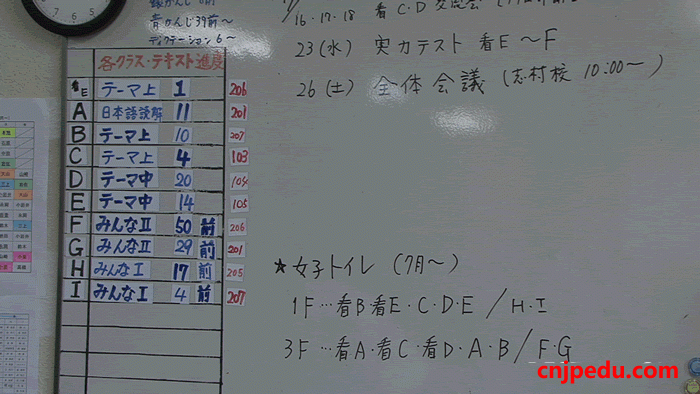 青かんじ39前～
ディクテーション6～
各クラス・テキスト進度
看E テーマ上 1 206
A 日本語読解 11 201
B テーマ上 10 207
C テーマ上 4 103
D テーマ中 20 104
E テーマ中 14 105
F みんなⅡ 50 前 206
G みんなⅡ 29 前 201
H みんなⅠ 17 前 205
I みんなⅠ 4 前 207
16・17・18 看C・D 交流会
23(水) 実力テスト 看E～F
26(土) 全体会議 (志村校 10:00～)
★女子トイレ (7月～)
1F…看B 看E・C・D・E / H・I
3F…看A・看C・看D・A・B / F・G
cnjpedu.com